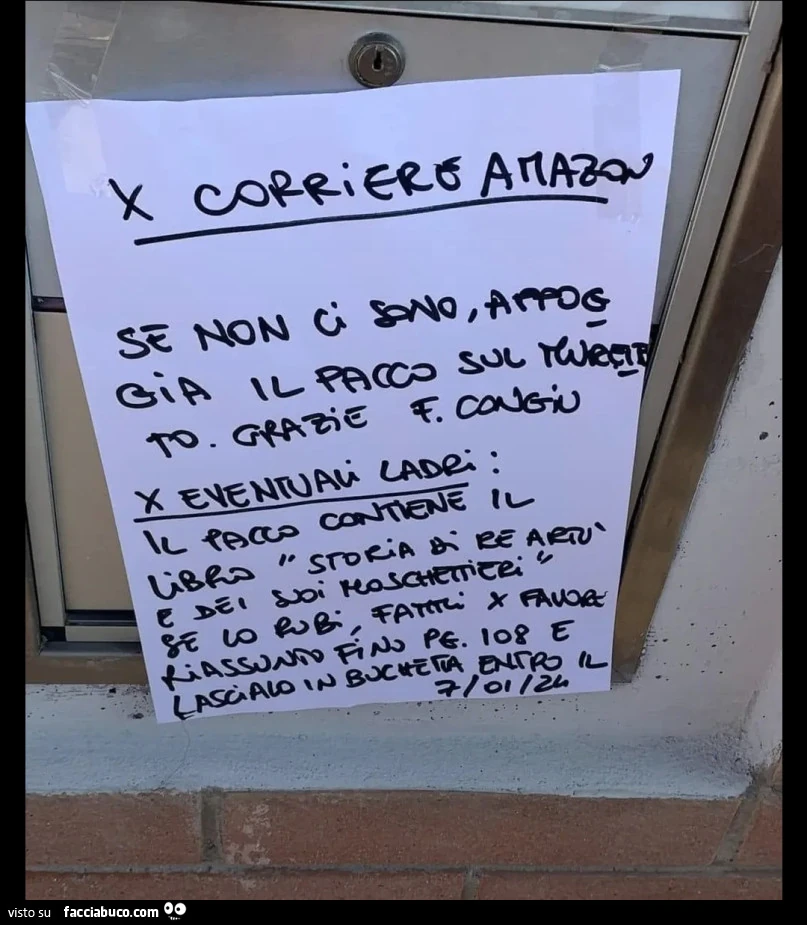 X CORRiERE AMAZON
SE NON Ci SONO, APPOG
GiA IL PACCO SUL MURET
TO. GRAZiE F. CONGiU
X EVENTUALi LADRi:
IL PACCO CONTIENE IL
LiBRO "STORiA Di RE ARTU'
E DEI SUOI MOSCHETTIERi"
SE LO RUBi, FAMMi X FAVORE
RiASSUNTO FiNO PG. 108 E
LASCiALO IN BUCHETTA ENTRO IL
7/01/24
visto su facciabuco.com